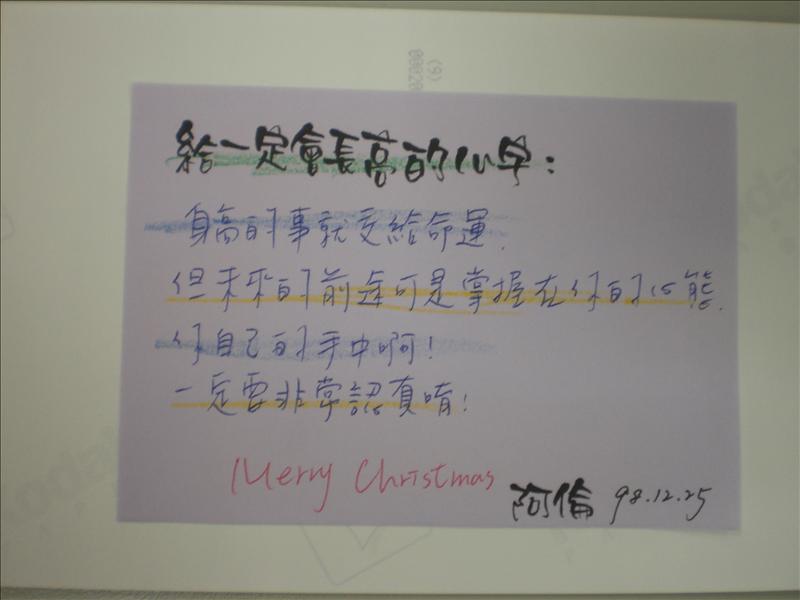 (9)
給一定會長高的心宇：
身高的事就交給命運.
但未來的前途可是掌握在你的心態.
你自己的手中啊!
一定要非常認真唷!
Merry Christmas
阿倫 98.12.25